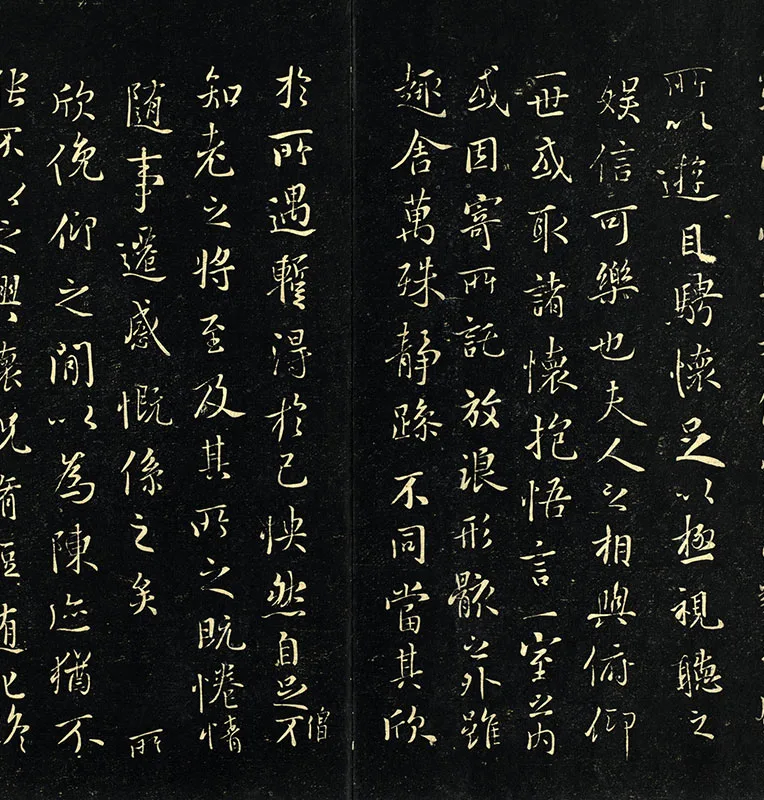 所以遊目騁懷足以極視聽之
娛信可樂也夫人之相與俯仰
一世或取諸懷抱悟言一室之內
或因寄所託放浪形骸之外雖
趣舍萬殊靜躁不同當其欣
於所遇蹔得於己怏然自足不
僧
知老之將至及其所之既惓情
隨事遷感慨係之矣 所
欣俛仰之間以為陳迹猶不
能不以之興懷況脩短隨化終